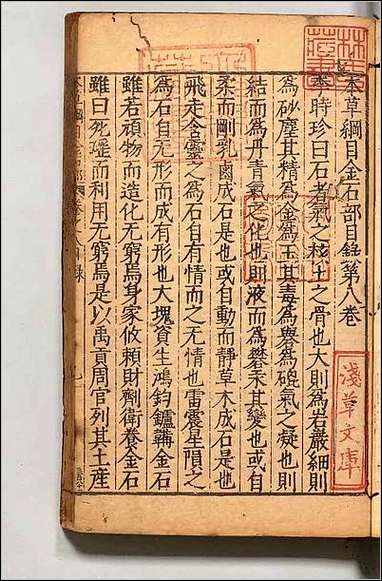 本草綱目金石部目錄第八卷
李時珍曰石者氣之核土之骨也大則為岩巖細則
為砂塵其精為金為玉其毒為礜為砒氣之凝也則
結而為丹青氣之化也則液而為礬汞其變也或自
柔而剛乳鹵成石是也或自動而靜草木成石是也
飛走含靈之為石自有情而之無情也雷震星隕之
為石自無形而成有形也大塊資生鴻鈞鑪鞴金石
雖若頑物而造化無窮焉身家攸賴財劑衛養金石
雖曰死瑤而利用無窮焉是以禹貢周官列其土產
淺草文庫
林氏
藏書